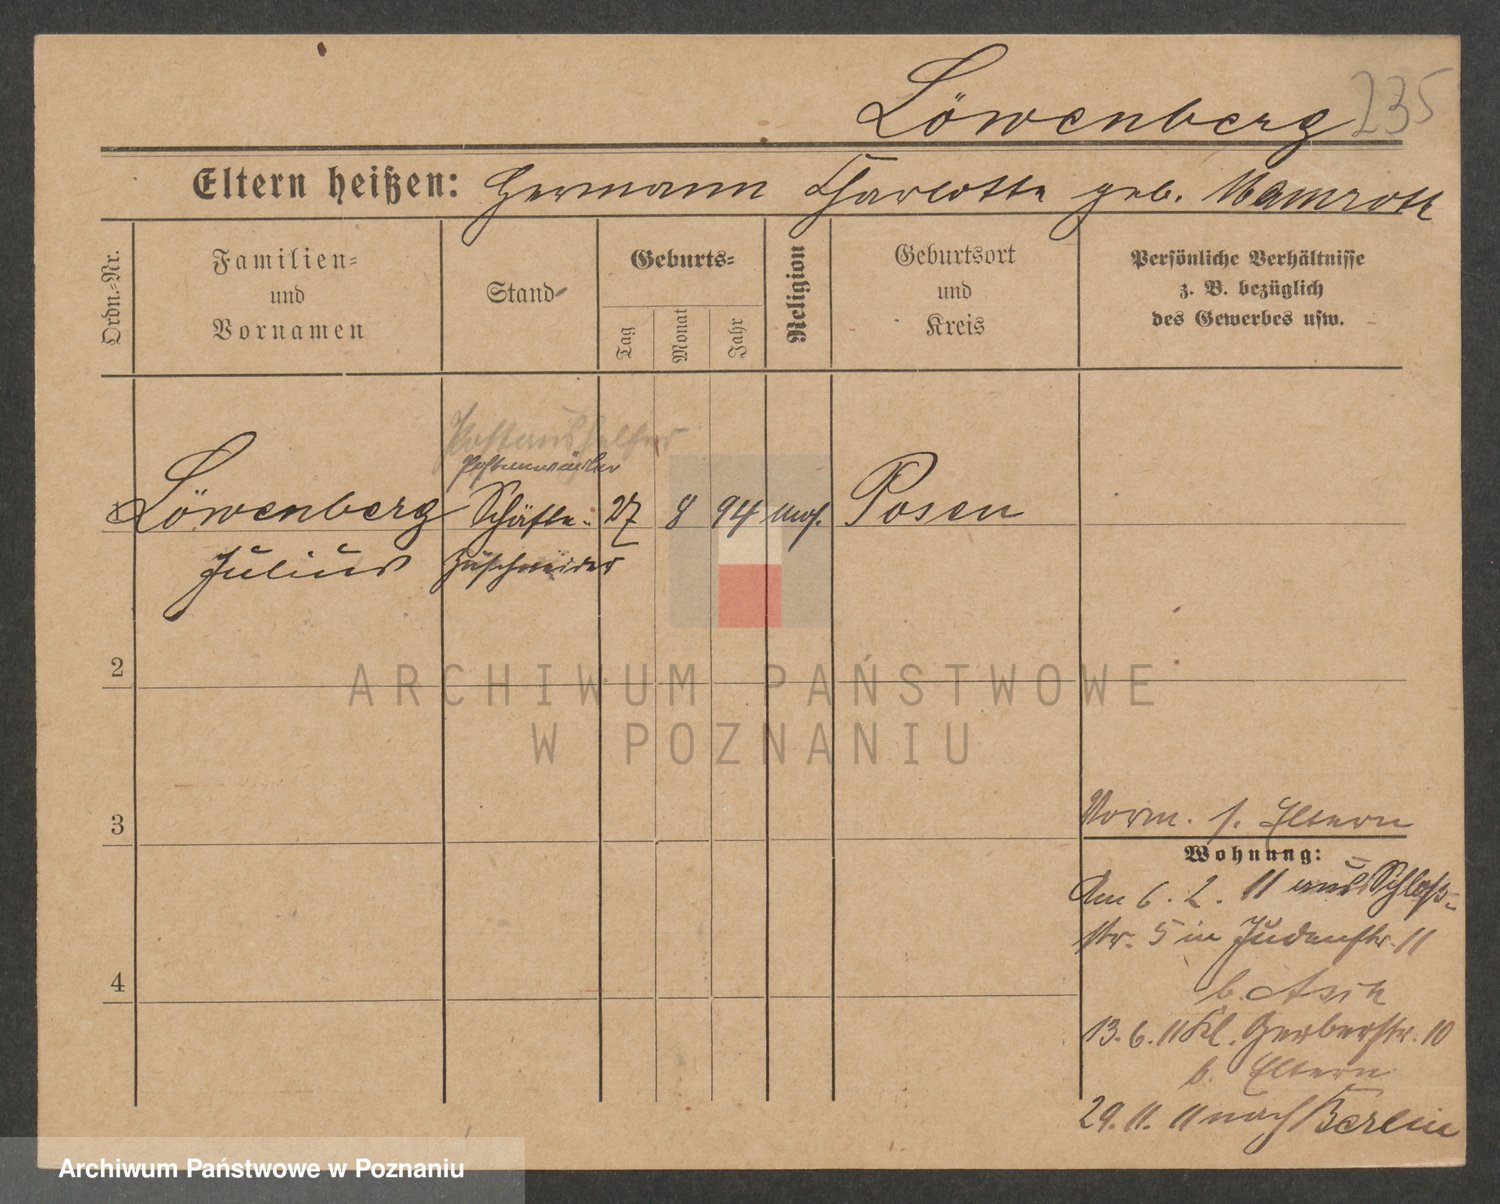 Löwenberg 235
Eltern heißen: Hermann Charlotte geb. Mamroth
Ordn.-Nr.
Familien-
und
Vornamen
Stand
Geburts-
Tag
Monat
Jahr
Religion
Geburtsort
und
Kreis
Persönliche Verhältnisse
z. B. bezüglich
des Gewerbes usw.
Postaushelfer
Löwenberg Schäfte- 27 8 94 mos. Posen
Julius zuschneider
2
3
4
Vorm. s. Eltern
Wohnung:
Am 6. 2. 11 aus Schloß-
str. 5 in Judenstr. 11
b.
13. 6. 11 Kl. Gerberstr. 10
b. Eltern
29. 11. 11 nach Berlin
ARCHIWUM PAŃSTWOWE
W POZNANIU
Archiwum Państwowe w Poznaniu